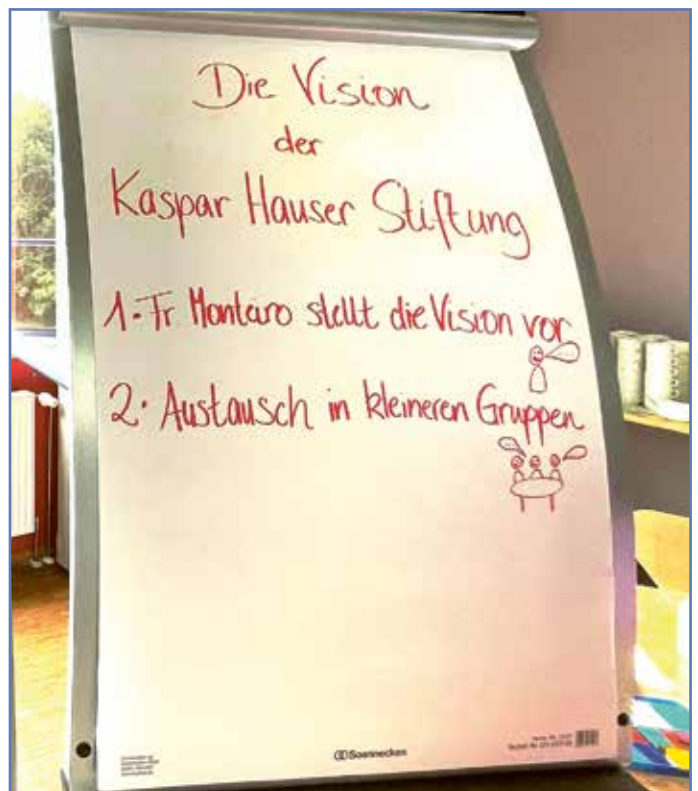 Die Vision
der
Kaspar Hauser Stiftung
1. Fr Montairo stellt die Vision vor
2. Austausch in kleineren Gruppen
Soennecken